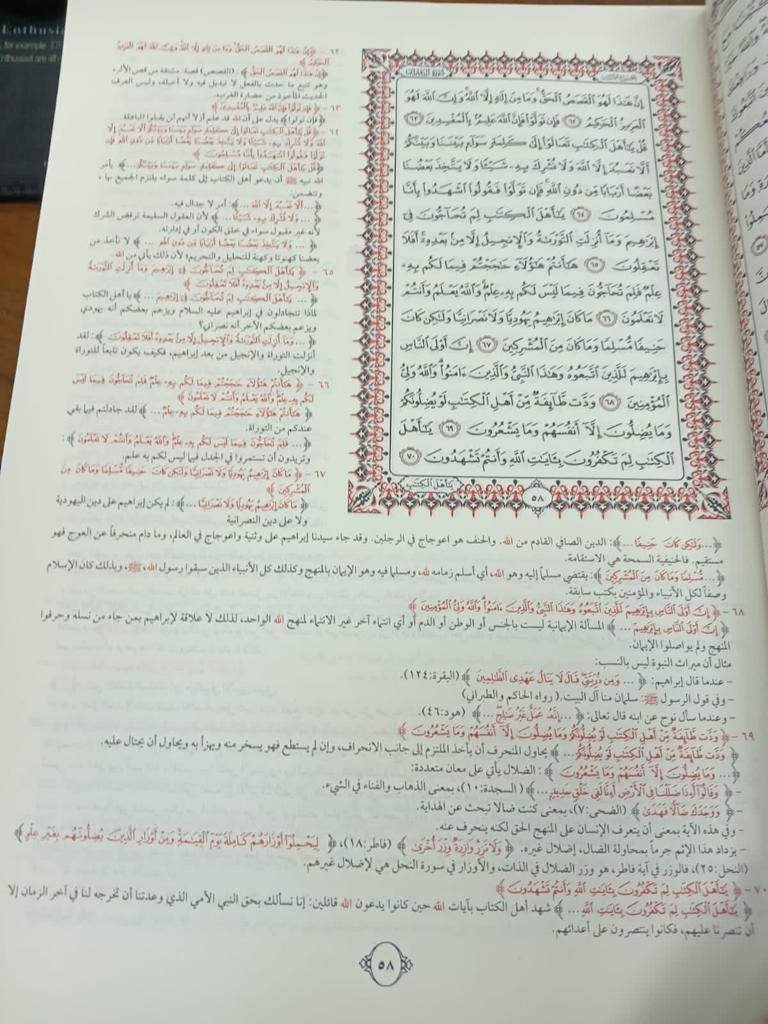 Enthusia
, for example
Enthusiast are all
سورة آل عمران
إِنَّ هَٰذَا لَهُوَ الْقَصَصُ الْحَقُّ وَمَا مِنْ إِلَٰهٍ إِلَّا اللَّهُ وَإِنَّ اللَّهَ لَهُوَ
الْعَزِيزُ الْحَكِيمُ ﴿٦٢﴾ فَإِن تَوَلَّوْا فَإِنَّ اللَّهَ عَلِيمٌ بِالْمُفْسِدِينَ ﴿٦٣﴾
قُلْ يَا أَهْلَ الْكِتَابِ تَعَالَوْا إِلَىٰ كَلِمَةٍ سَوَاءٍ بَيْنَنَا وَبَيْنَكُمْ
أَلَّا نَعْبُدَ إِلَّا اللَّهَ وَلَا نُشْرِكَ بِهِ شَيْئًا وَلَا يَتَّخِذَ بَعْضُنَا
بَعْضًا أَرْبَابًا مِّن دُونِ اللَّهِ فَإِن تَوَلَّوْا فَقُولُوا اشْهَدُوا بِأَنَّا
مُسْلِمُونَ ﴿٦٤﴾ يَا أَهْلَ الْكِتَابِ لِمَ تُحَاجُّونَ فِي
إِبْرَاهِيمَ وَمَا أُنزِلَتِ التَّوْرَاةُ وَالْإِنجِيلُ إِلَّا مِن بَعْدِهِ أَفَلَا
تَعْقِلُونَ ﴿٦٥﴾ هَا أَنتُمْ هَٰؤُلَاءِ حَاجَجْتُمْ فِيمَا لَكُم بِهِ
عِلْمٌ فَلِمَ تُحَاجُّونَ فِيمَا لَيْسَ لَكُم بِهِ عِلْمٌ وَاللَّهُ يَعْلَمُ وَأَنتُمْ
لَا تَعْلَمُونَ ﴿٦٦﴾ مَا كَانَ إِبْرَاهِيمُ يَهُودِيًّا وَلَا نَصْرَانِيًّا وَلَٰكِن كَانَ
حَنِيفًا مُّسْلِمًا وَمَا كَانَ مِنَ الْمُشْرِكِينَ ﴿٦٧﴾ إِنَّ أَوْلَى النَّاسِ
بِإِبْرَاهِيمَ لَلَّذِينَ اتَّبَعُوهُ وَهَٰذَا النَّبِيُّ وَالَّذِينَ آمَنُوا وَاللَّهُ وَلِيُّ
الْمُؤْمِنِينَ ﴿٦٨﴾ وَدَّت طَّائِفَةٌ مِّنْ أَهْلِ الْكِتَابِ لَوْ يُضِلُّونَكُمْ
وَمَا يُضِلُّونَ إِلَّا أَنفُسَهُمْ وَمَا يَشْعُرُونَ ﴿٦٩﴾ يَا أَهْلَ
الْكِتَابِ لِمَ تَكْفُرُونَ بِآيَاتِ اللَّهِ وَأَنتُمْ تَشْهَدُونَ ﴿٧٠﴾
يَا أَهْلَ الْكِتَابِ
٥٨
٦٢ - ﴿إِنَّ هَذَا لَهُوَ الْقَصَصُ الْحَقُّ وَمَا مِنْ إِلَهٍ إِلَّا اللَّهُ وَإِنَّ اللَّهَ لَهُوَ الْعَزِيزُ
الْحَكِيمُ﴾
﴿إِنَّ هَذَا لَهُوَ الْقَصَصُ الْحَقُّ﴾: (القصص) قصة: مشتقة من قص الأثر،
وهو تتبع ما حدث بالفعل لا تبديل فيه ولا أخيلة، وليس العرف
الحديث المأخوذ من حضارة الغرب.
٦٣ - ﴿فَإِن تَوَلَّوْا فَإِنَّ اللَّهَ عَلِيمٌ بِالْمُفْسِدِينَ﴾
﴿فَإِن تَوَلَّوْا﴾ يدل على أن الله قد علم أزلاً أنهم لن يقبلوا المباهلة.
٦٤ - ﴿قُلْ يَا أَهْلَ الْكِتَابِ تَعَالَوْا إِلَى كَلِمَةٍ سَوَاءٍ بَيْنَنَا وَبَيْنَكُمْ أَلَّا نَعْبُدَ إِلَّا
اللَّهَ وَلَا نُشْرِكَ بِهِ شَيْئًا وَلَا يَتَّخِذَ بَعْضُنَا بَعْضًا أَرْبَابًا مِّن دُونِ اللَّهِ فَإِن
تَوَلَّوْا فَقُولُوا اشْهَدُوا بِأَنَّا مُسْلِمُونَ﴾
﴿قُلْ يَا أَهْلَ الْكِتَابِ تَعَالَوْا إِلَى كَلِمَةٍ سَوَاءٍ بَيْنَنَا وَبَيْنَكُمْ...﴾ يأمر
الله نبيه ﷺ أن يدعو أهل الكتاب إلى كلمة سواء يلتزم الجميع بها،
وتتضمن:
﴿...أَلَّا نَعْبُدَ إِلَّا اللَّهَ ...﴾: أمر لا جدال فيه.
﴿... وَلَا نُشْرِكَ بِهِ شَيْئًا...﴾ لأن العقول السليمة ترفض الشرك
لأنه غير مقبول سواء في خلق الكون أو في إدارته.
﴿... وَلَا يَتَّخِذَ بَعْضُنَا بَعْضًا أَرْبَابًا مِّن دُونِ اللَّهِ ...﴾ لا نأخذ من
بعضنا كهنوتاً وكهنة للتحليل والتحريم؛ لأن ذلك يأتي من الله.
٦٥ - ﴿يَا أَهْلَ الْكِتَابِ لِمَ تُحَاجُّونَ فِي إِبْرَاهِيمَ وَمَا أُنزِلَتِ التَّوْرَاةُ
وَالْإِنجِيلُ إِلَّا مِن بَعْدِهِ أَفَلَا تَعْقِلُونَ﴾
﴿... يَا أَهْلَ الْكِتَابِ لِمَ تُحَاجُّونَ فِي إِبْرَاهِيمَ ...﴾ يا أهل الكتاب
لماذا تتجادلون في إبراهيم عليه السلام ويزعم بعضكم أنه يهودي
ويزعم بعضكم الآخر أنه نصراني؟
﴿...وَمَا أُنزِلَتِ التَّوْرَاةُ وَالْإِنجِيلُ إِلَّا مِن بَعْدِهِ أَفَلَا تَعْقِلُونَ﴾: لقد
أنزلت التوراة والإنجيل من بعد إبراهيم، فكيف يكون تابعاً للتوراة
والإنجيل.
٦٦ - ﴿هَا أَنتُمْ هَؤُلَاءِ حَاجَجْتُمْ فِيمَا لَكُم بِهِ عِلْمٌ فَلِمَ تُحَاجُّونَ فِيمَا لَيْسَ
لَكُم بِهِ عِلْمٌ وَاللَّهُ يَعْلَمُ وَأَنتُمْ لَا تَعْلَمُونَ﴾
﴿هَا أَنتُمْ هَؤُلَاءِ حَاجَجْتُمْ فِيمَا لَكُم بِهِ عِلْمٌ...﴾ لقد جادلتم فيما بقي
عندكم من التوراة.
﴿... فَلِمَ تُحَاجُّونَ فِيمَا لَيْسَ لَكُم بِهِ عِلْمٌ وَاللَّهُ يَعْلَمُ وَأَنتُمْ لَا تَعْلَمُونَ﴾:
وتريدون أن تستمروا في الجدل فيما ليس لكم به علم.
٦٧ - ﴿مَا كَانَ إِبْرَاهِيمُ يَهُودِيًّا وَلَا نَصْرَانِيًّا وَلَكِن كَانَ حَنِيفًا مُّسْلِمًا وَمَا كَانَ مِنَ
الْمُشْرِكِينَ﴾
﴿مَا كَانَ إِبْرَاهِيمُ يَهُودِيًّا وَلَا نَصْرَانِيًّا...﴾: لم يكن إبراهيم على دين اليهودية
ولا على دين النصرانية
﴿...وَلَكِن كَانَ حَنِيفًا...﴾: الدين الصافي القادم من الله. والحنف هو اعوجاج في الرجلين. وقد جاء سيدنا إبراهيم على وثنية واعوجاج في العالم، وما دام منحرفاً عن العوج فهو
مستقيم. فالحنيفية السمحة هي الاستقامة.
﴿...مُّسْلِمًا وَمَا كَانَ مِنَ الْمُشْرِكِينَ﴾: يقتضي مسلماً إليه وهو الله، أي أسلم زمامه لله، ومسلما فيه وهو الإيمان بالمنهج وكذلك كل الأنبياء الذين سبقوا رسول الله، ﷺ، وبذلك كان الإسلام
وصفاً لكل الأنبياء والمؤمنين بكتب سابقة.
٦٨ - ﴿إِنَّ أَوْلَى النَّاسِ بِإِبْرَاهِيمَ لَلَّذِينَ اتَّبَعُوهُ وَهَذَا النَّبِيُّ وَالَّذِينَ آمَنُوا وَاللَّهُ وَلِيُّ الْمُؤْمِنِينَ﴾
﴿إِنَّ أَوْلَى النَّاسِ بِإِبْرَاهِيمَ ...﴾ المسألة الإيمانية ليست بالجنس أو الوطن أو الدم أو أي انتماء آخر غير الانتماء لمنهج الله الواحد، لذلك لا علاقة لإبراهيم بمن جاء من نسله وحرفوا
المنهج ولم يواصلوا الإيمان.
مثال أن ميراث النبوة ليس بالنسب:
- عندما قال إبراهيم: ﴿... وَمِن ذُرِّيَّتِي قَالَ لَا يَنَالُ عَهْدِي الظَّالِمِينَ﴾ (البقرة:١٢٤).
- وفي قول الرسول ﷺ: سلمان منا آل البيت. (رواه الحاكم والطبراني)
- وعندما سأل نوح عن ابنه قال تعالى: ﴿...إِنَّهُ عَمَلٌ غَيْرُ صَالِحٍ...﴾ (هود:٤٦).
٦٩ - ﴿وَدَّت طَّائِفَةٌ مِّنْ أَهْلِ الْكِتَابِ لَوْ يُضِلُّونَكُمْ وَمَا يُضِلُّونَ إِلَّا أَنفُسَهُمْ وَمَا يَشْعُرُونَ﴾
﴿وَدَّت طَّائِفَةٌ مِّنْ أَهْلِ الْكِتَابِ لَوْ يُضِلُّونَكُمْ...﴾ يحاول المنحرف أن يأخذ الملتزم إلى جانب الانحراف، وإن لم يستطع فهو يسخر منه ويهزأ به ويحاول أن يحتال عليه.
﴿... وَمَا يُضِلُّونَ إِلَّا أَنفُسَهُمْ وَمَا يَشْعُرُونَ﴾: الضلال يأتي على معان متعددة:
- ﴿وَقَالُوا أَإِذَا ضَلَلْنَا فِي الْأَرْضِ أَإِنَّا لَفِي خَلْقٍ جَدِيدٍ...﴾ (السجدة:١٠)، بمعنى الذهاب والفناء في الشيء.
- ﴿وَوَجَدَكَ ضَالًّا فَهَدَى﴾ (الضحى:٧)، بمعنى كنت ضالا تبحث عن الهداية.
- وفي هذه الآية بمعنى أن يتعرف الإنسان على المنهج الحق لكنه ينحرف عنه.
- يزداد هذا الإثم جرماً بمحاولة الضال، إضلال غيره. ﴿وَلَا تَزِرُ وَازِرَةٌ وِزْرَ أُخْرَى﴾ (فاطر:١٨)، ﴿لِيَحْمِلُوا أَوْزَارَهُمْ كَامِلَةً يَوْمَ الْقِيَامَةِ وَمِنْ أَوْزَارِ الَّذِينَ يُضِلُّونَهُم بِغَيْرِ عِلْمٍ﴾
(النحل:٢٥)، فالوزر في آية فاطر، هو وزر الضلال في الذات، والأوزار في سورة النحل هي لإضلال غيرهم.
٧٠ - ﴿يَا أَهْلَ الْكِتَابِ لِمَ تَكْفُرُونَ بِآيَاتِ اللَّهِ وَأَنتُمْ تَشْهَدُونَ﴾
﴿يَا أَهْلَ الْكِتَابِ لِمَ تَكْفُرُونَ بِآيَاتِ اللَّهِ...﴾ شهد أهل الكتاب بآيات الله حين كانوا يدعون الله قائلين: إنا نسألك بحق النبي الأمي الذي وعدتنا أن تخرجه لنا في آخر الزمان إلا
أن تنصرنا عليهم، فكانوا ينتصرون على أعدائهم.
٥٨